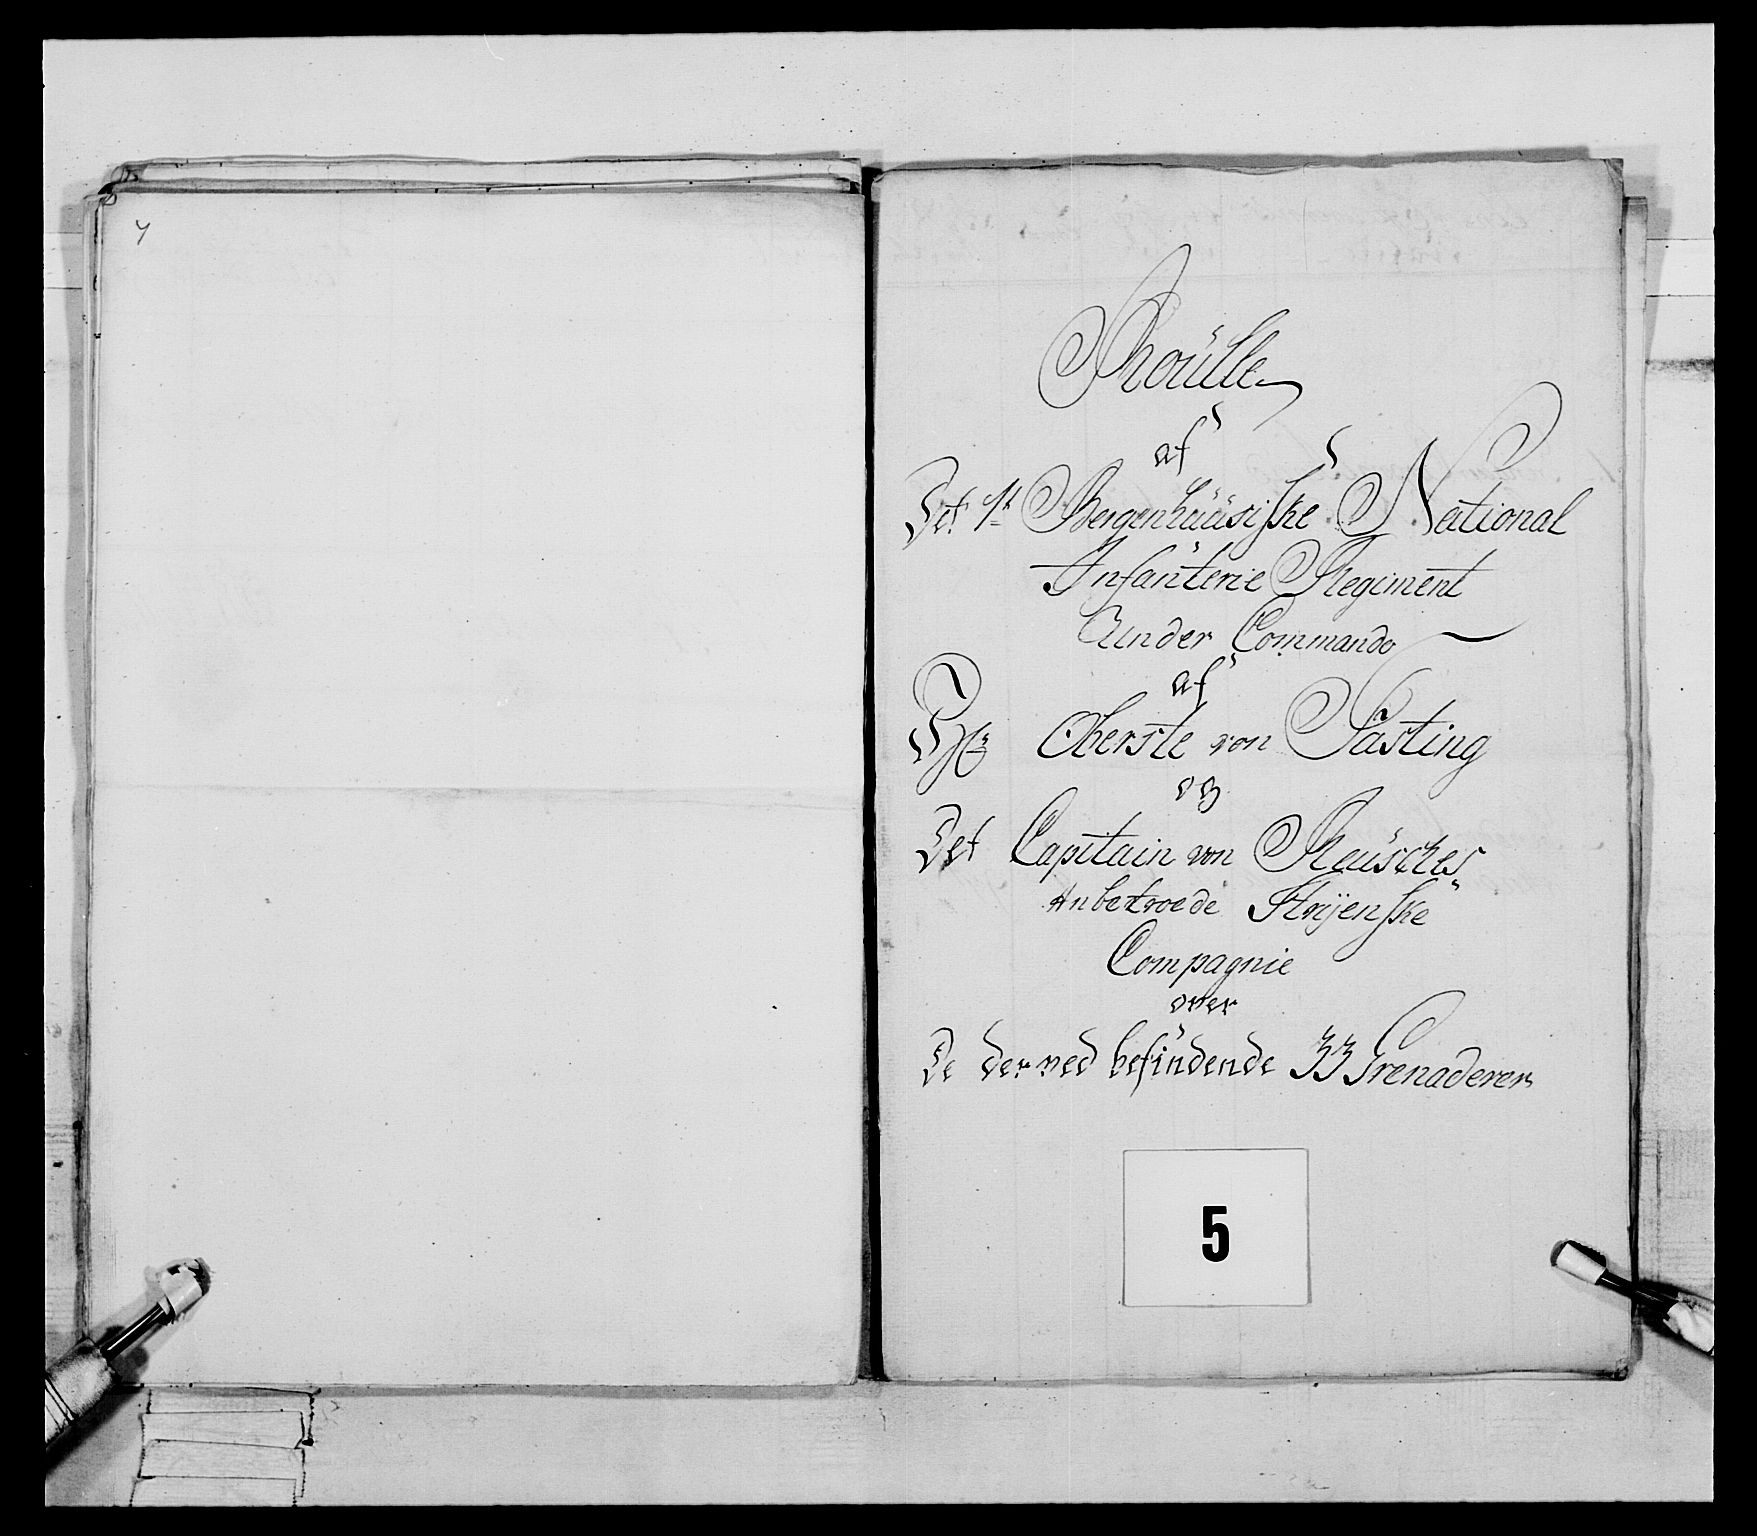 Roülle
af
Det 1te Bergenhüüsiske National
Infanterie Regiment
Under Commando
af
Hr Oberste von
og
Det Capitain von Reüsches
Anbetroede Strijenske
Compagnie
over
De derved befindende 33 Grenaderer
5